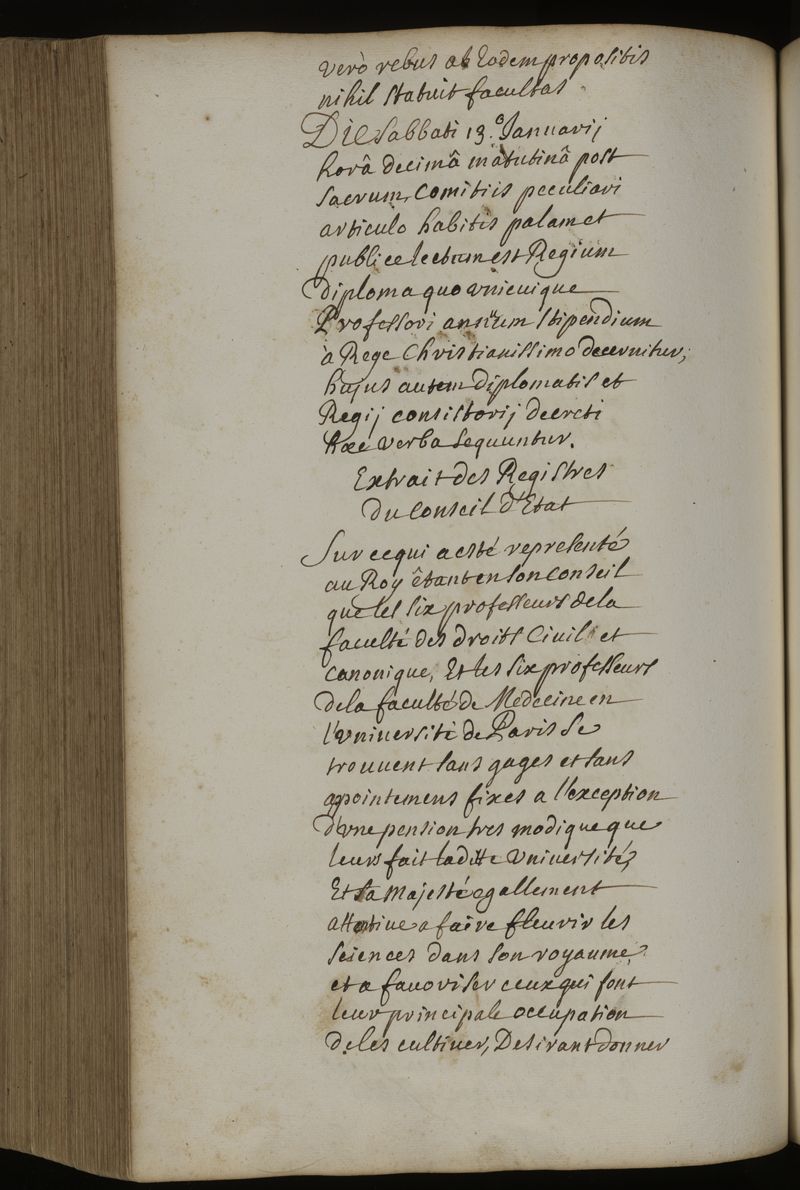 verò rebus ab Eodem propositis
nihil statuit facultas
Die Sabbati 13.° Januarij
horâ decimâ matutinâ post
sacrum, Comitiis peculiari
articulo habitis palam et
publice lectum est Regium
diploma quo vnicuique
Professori annuum stipendium
à Rege Christianissimo decernitur;
hujus autem diplomatis et
Regij consistorij decreti
hæc verba sequuntur.
Extrait des Registres
Du Conseil d'Etat
Sur ce qui a esté representé
au Roy êtant en son Conseil
que les six professeurs de la
faculté des droits Civil et
Canonique, Et les six professeurs
de la faculté de Medecine en
l'vniuersité de Paris se
trouuent sans gages et sans
appointemens fixes a l'exception
d'vne pension tres modique que
leurs fait laditte Vniuersité,
Et sa Majesté egallement
attentiue a faire fleurir les
sciences dans son royaume,
et a fauoriser ceux qui font
leur principale occupation
de les cultiuer, Desirant donner